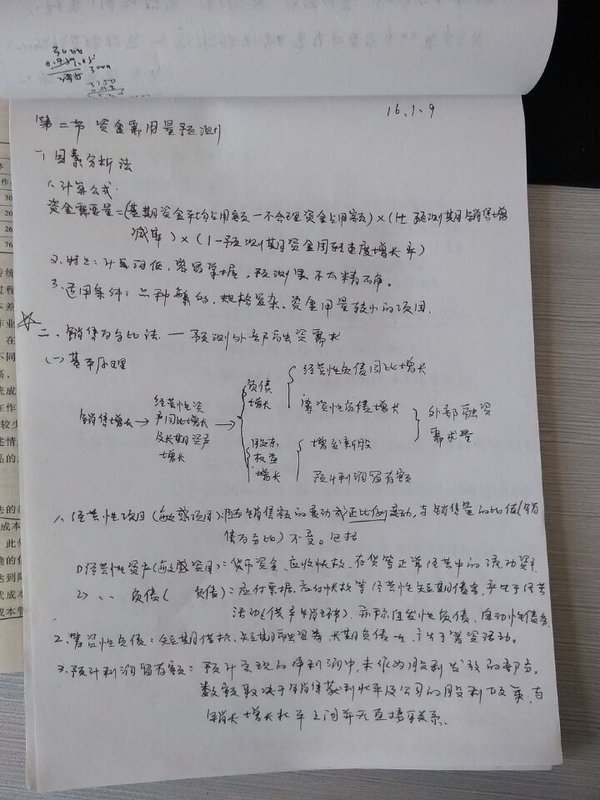 3000
3000
16.1.9
第二节 资金需用量预测
一、因素分析法
1、计算公式:
资金需要量=(基期资金平均占用额-不合理资金占用额)×(1±预测期销售增
减率)×(1-预测期资金周转速度增长率)
2、特点:计算简便,容易掌握,预测结果不太精确。
3、适用条件:品种繁多,规格复杂、资金用量较小的项目.
☆
二、销售百分比法 — 预测外部融资需求
(一)基本原理
销售增长→
经营性资
产同比增长
及长期资产
增长
→
负债
增长
经营性负债同比增长
筹资性负债增长
股东
权益
增长
增发新股
预计利润留存额
外部融资
需求量
1、经营性项目(敏感项目):随销售额的变动成正比例变动,与销售量的比值(销
售百分比)不变。包括
①经营性资产(敏感资产):货币资金、应收账款、存货等正常经营中的流动资产
②〃 负债( 负债):应付票据、应付账款等经营性短期债务,产生于经营
活动(供产销环节),亦称自发性负债、自动性债务
2、筹资性负债:短期借款、短期融资券、长期负债等,产生于筹资活动。
3、预计利润留存额:预计实现的净利润中,未作为股利发放的部分,
数额取决于销售获利水平及公司的股利政策,与
销售增长水平之间并无直接关系.